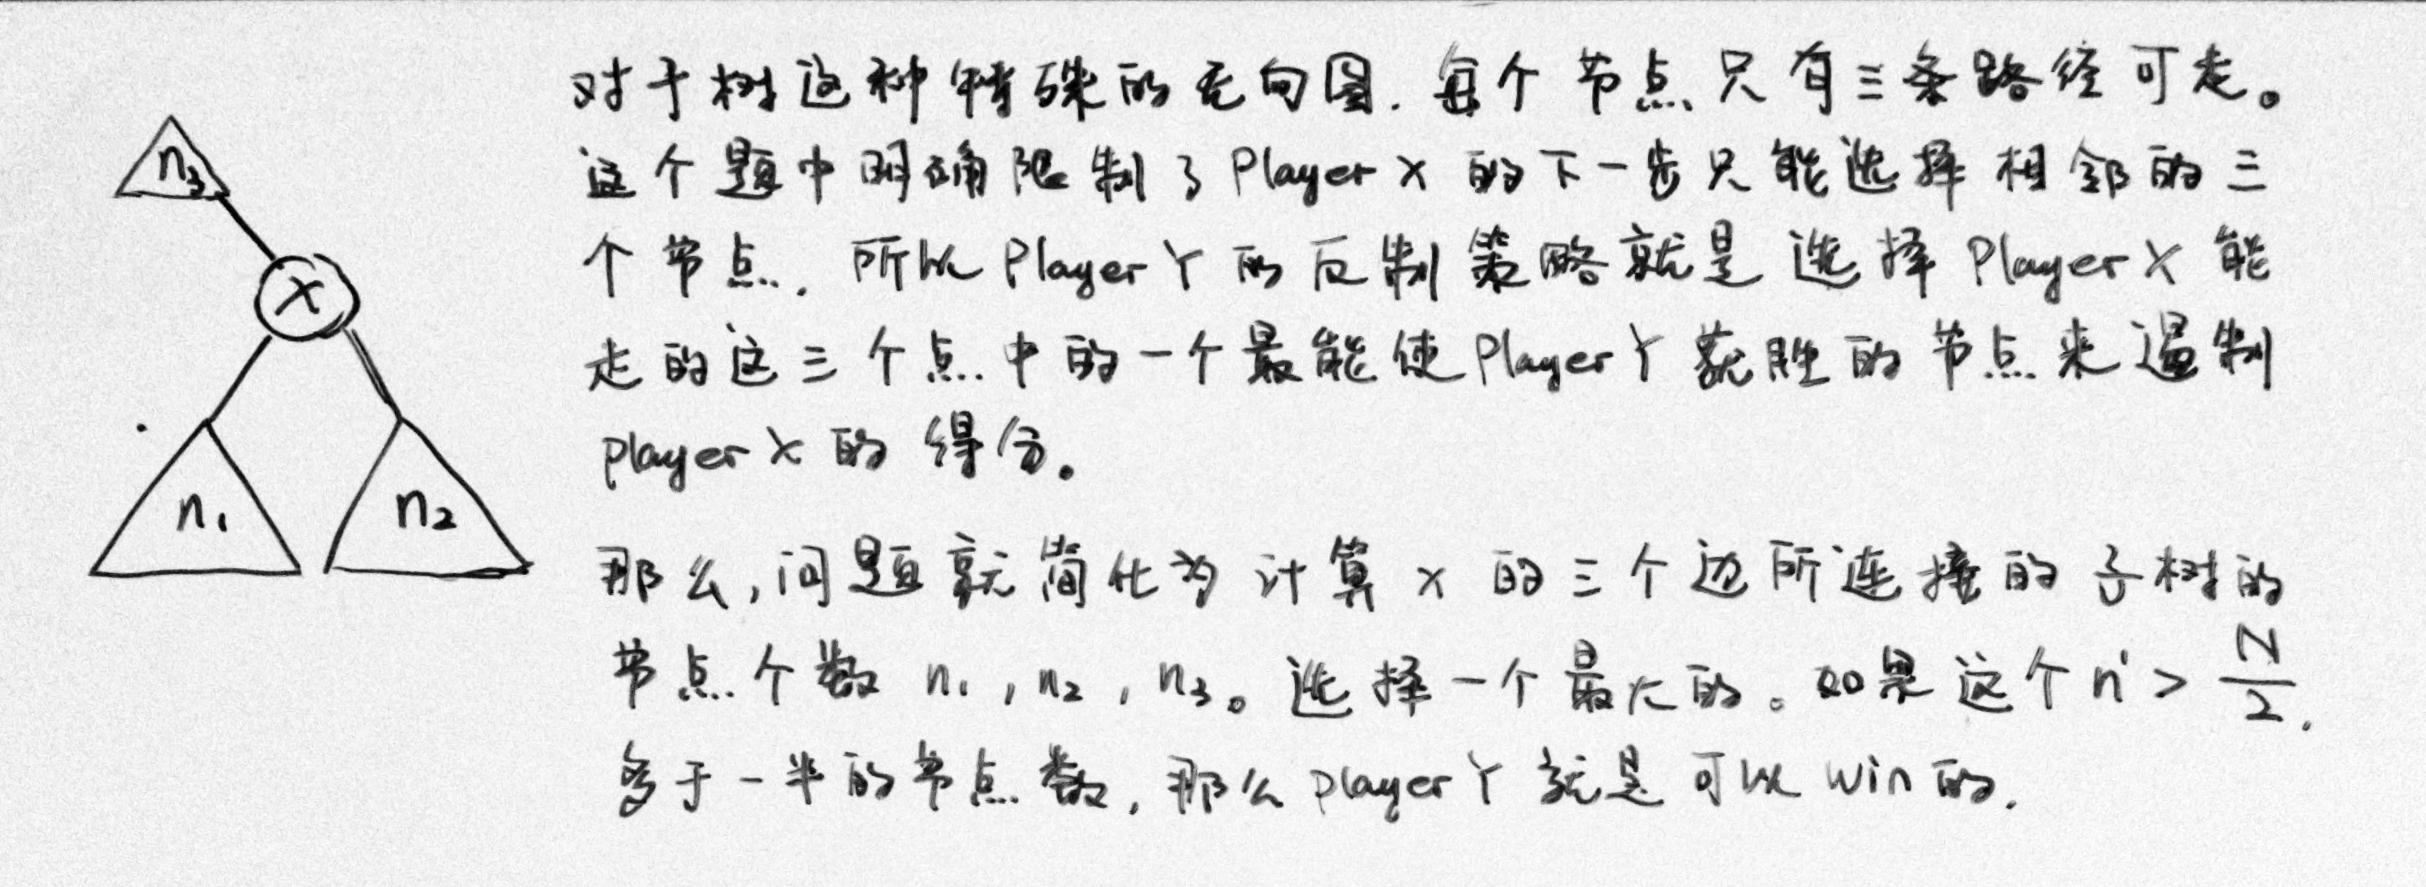 对于树这种特殊的无向图，每个节点只有三条路径可走。
这个题中明确限制了 Player X 的下一步只能选择相邻的三
个节点，所以 Player Y 的反制策略就是选择 Player X 能
走的这三个点中的一个最能使 Player Y 获胜的节点来遏制
player X 的得分。
那么，问题就简化为计算 X 的三个边所连接的子树的
节点个数 n₁，n₂，n₃。选择一个最大的。如果这个 n' > N/2，
多于一半的节点数，那么 player Y 就是可以 win 的。
n₃
X
n₁
n₂